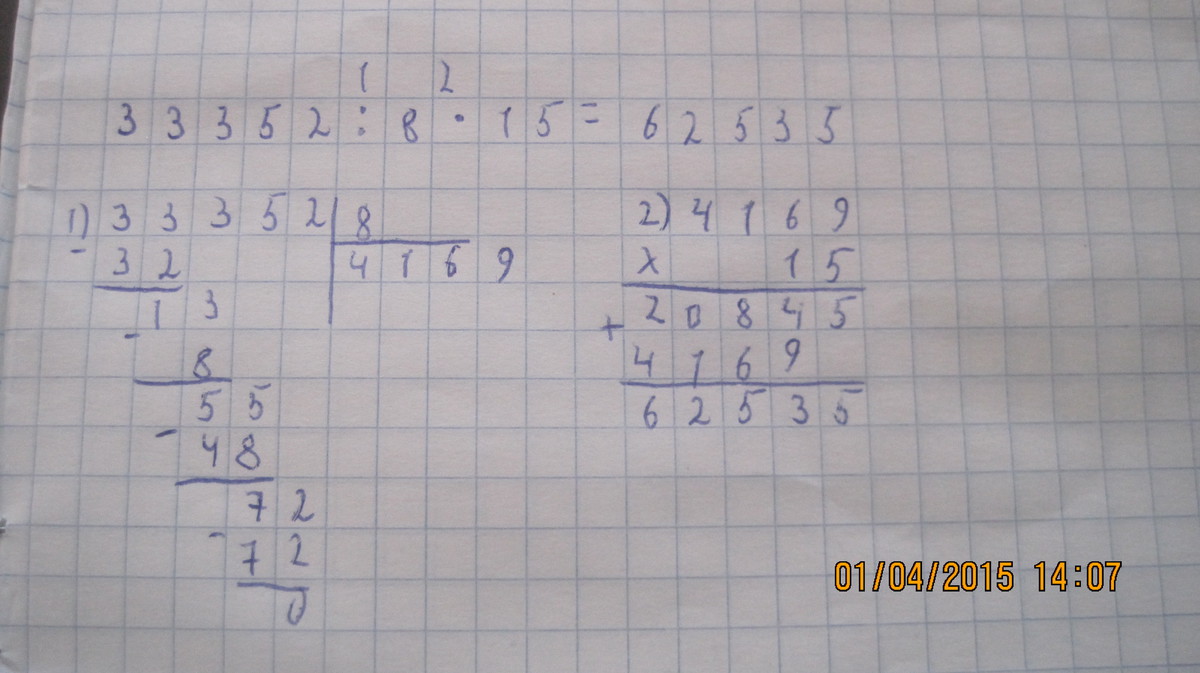 1 2
33352 : 8 · 15 = 62535
1) 33352 | 8
- 32 4169
13
- 8
55
- 48
72
- 72
0
2) 4169
x 15
20845
+ 4169
62535
01/04/2015 14:07